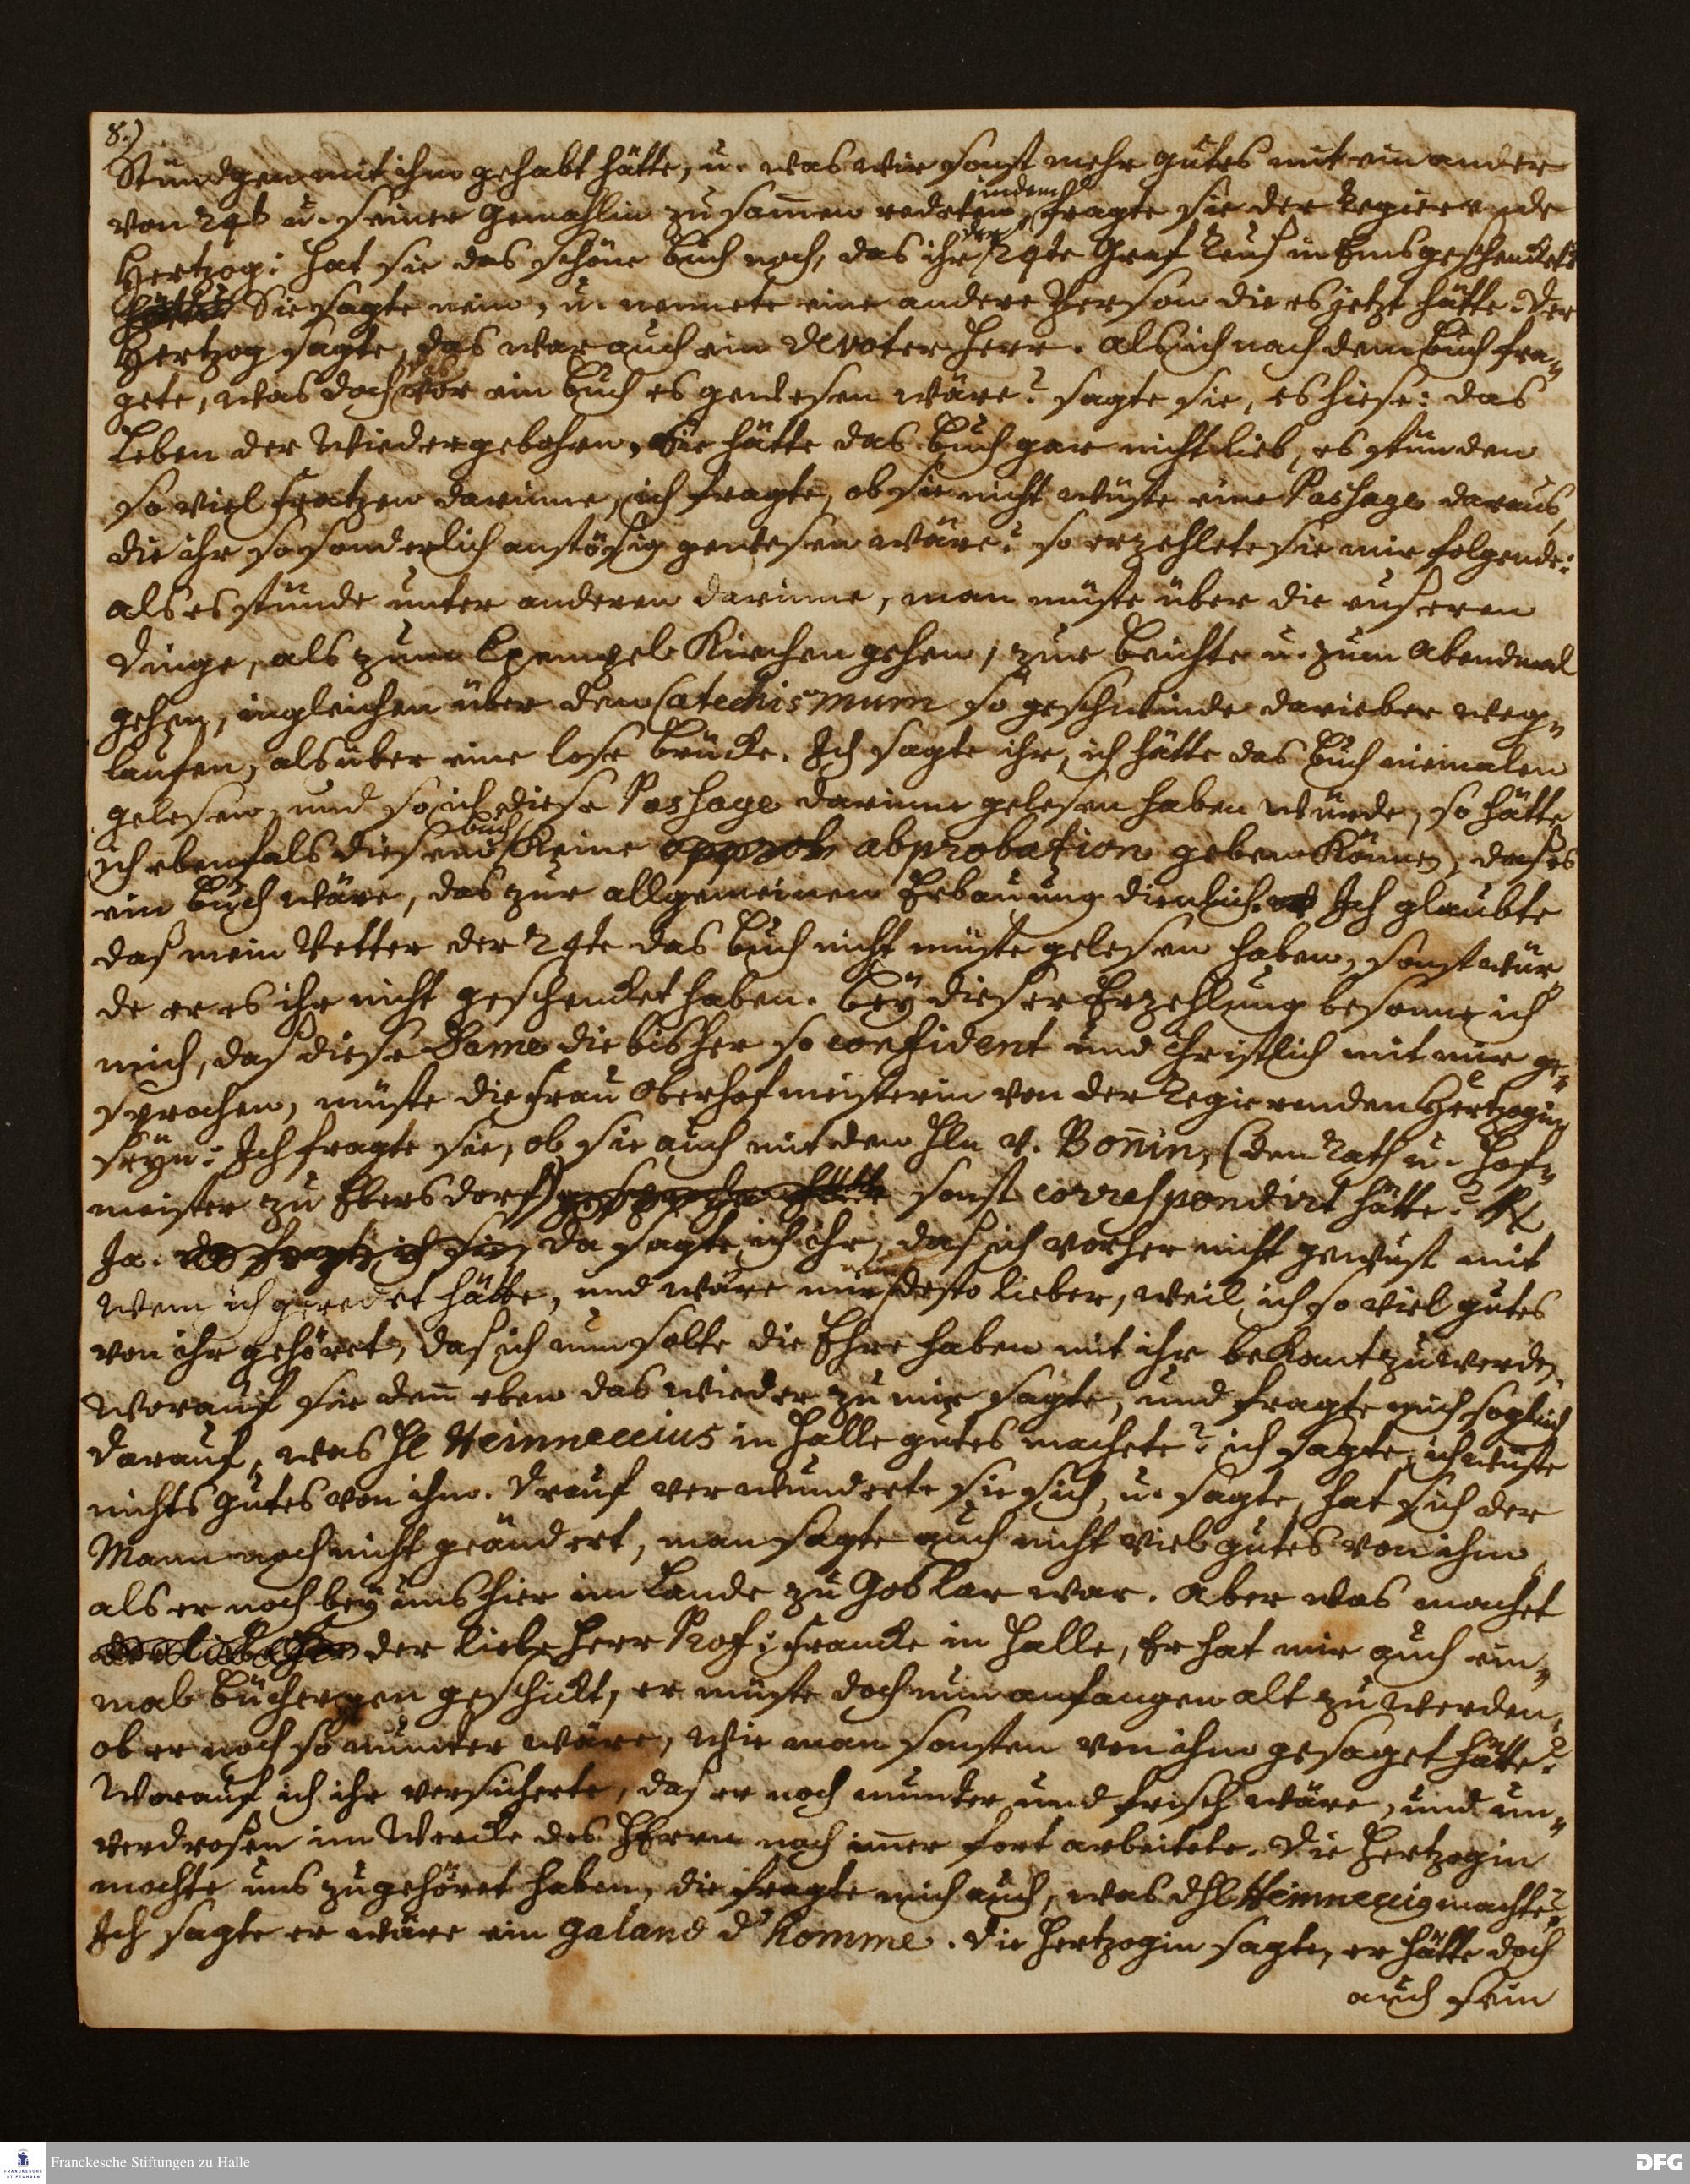 8.)
Stündgen mit ihm gehabt hätte, u. was wir sonst mehr gutes mit einander
von 24t u. seiner Gemahlin zusam̄en redeten, indem fragte sie der Regierende
Hertzog: hat sie das schöne Buch noch, das ihr der 24te Graf Reuß in Ems geschencket
hätte? Sie sagte nein, u. nennete eine andere Person die es jetzt hätte. Der
Hertzog sagte, das war auch ein devoter Herr. Als ich nach dem Buch fra-
gete, was doch vor ein Buch es gewesen wäre? sagte sie, es hiese: das
Leben der Wiedergebohrn, Sie hätte das Buch gar nicht lieb, es stünden
so viel Fratzen darinne, ich fragte, ob sie nicht wüste eine Passage daraus,
die ihr so sonderlich anstößig gewesen wäre? so erzehlete sie mir folgende:
als es stünde unter anderen darinne, man müste über die euseren
Dinge, als zum Exempel Kirchen gehen, zur Beichte u. zum Abendmal
gehen, ingleichen über den Catechismum so geschwinde darieber weg-
laufen, als über eine lose Brücke. Ich sagte ihr, ich hätte das Buch niemalen
gelesen, und so ich diese Passage darinne gelesen haben würde, so hätte
ich ebenfals diesem Buch keine approb abprobation geben können, daß es
ein Buch wäre, das zur allgemeinen Erbauung dienlich. Ich glaubte
daß mein Vetter der 24te das Buch nicht müste gelesen haben, sonst wür-
de er es ihr nicht geschencket haben. Bey dieser Erzehlung besonne ich
mich, daß diese Dame die bisher so confident und Christlich mit mir ge-
sprochen, müste die Frau Oberhofmeisterin von der Regierenden Hertzogin
seyn: Ich fragte sie, ob sie auch mit dem Hln v. Bon̄in, (den Rath u. Hof-
meister zu Ebersdorf) gesprochen hätte sonst correspondirt hätte? Rx
Ja. da fragte ich sie, da sagte ich ihr, daß ich vorher nicht gewust mit
wem ich geredet hätte, und wäre mir nun desto lieber, weil ich so viel gutes
von ihr gehöret, daß ich nun solte die Ehre haben mit ihr bekant zu werden,
Worauf sie den̄ eben das wieder zu mir sagte, und fragte mich soglich
darauf, was Hl Heinneccius in Halle gutes machete? ich sagte, ich wüste
nichts gutes von ihm. Drauf verwunderte sie sich, u. sagte, hat sich der
Mann noch nicht geändert, man sagte auch nicht viel gutes von ihm,
als er noch bey uns hier im Lande zu Goslar war. Aber was machet
der liebe Herr der liebe Herr Prof: Francke in Halle, Er hat mir auch ein-
mal Büchergen geschickt, er müste doch nun anfangen alt zu werden,
ob er noch so munter wäre, wie man sonsten von ihm gesaget hätte?
Worauf ich ihr versicherte, daß er noch munter und frisch wäre, und un-
verdrosen im Wercke des HErrn noch im̄er fort arbeitete. Die Hertzogin
mochte uns zugehöret haben, die fragte mich auch, was dHl Heinneccius machte?
Ich sagte er wäre ein galand d'homme. Die Hertzogin sagte, er hätte doch
auch sein
Franckesche Stiftungen zu Halle
DFG